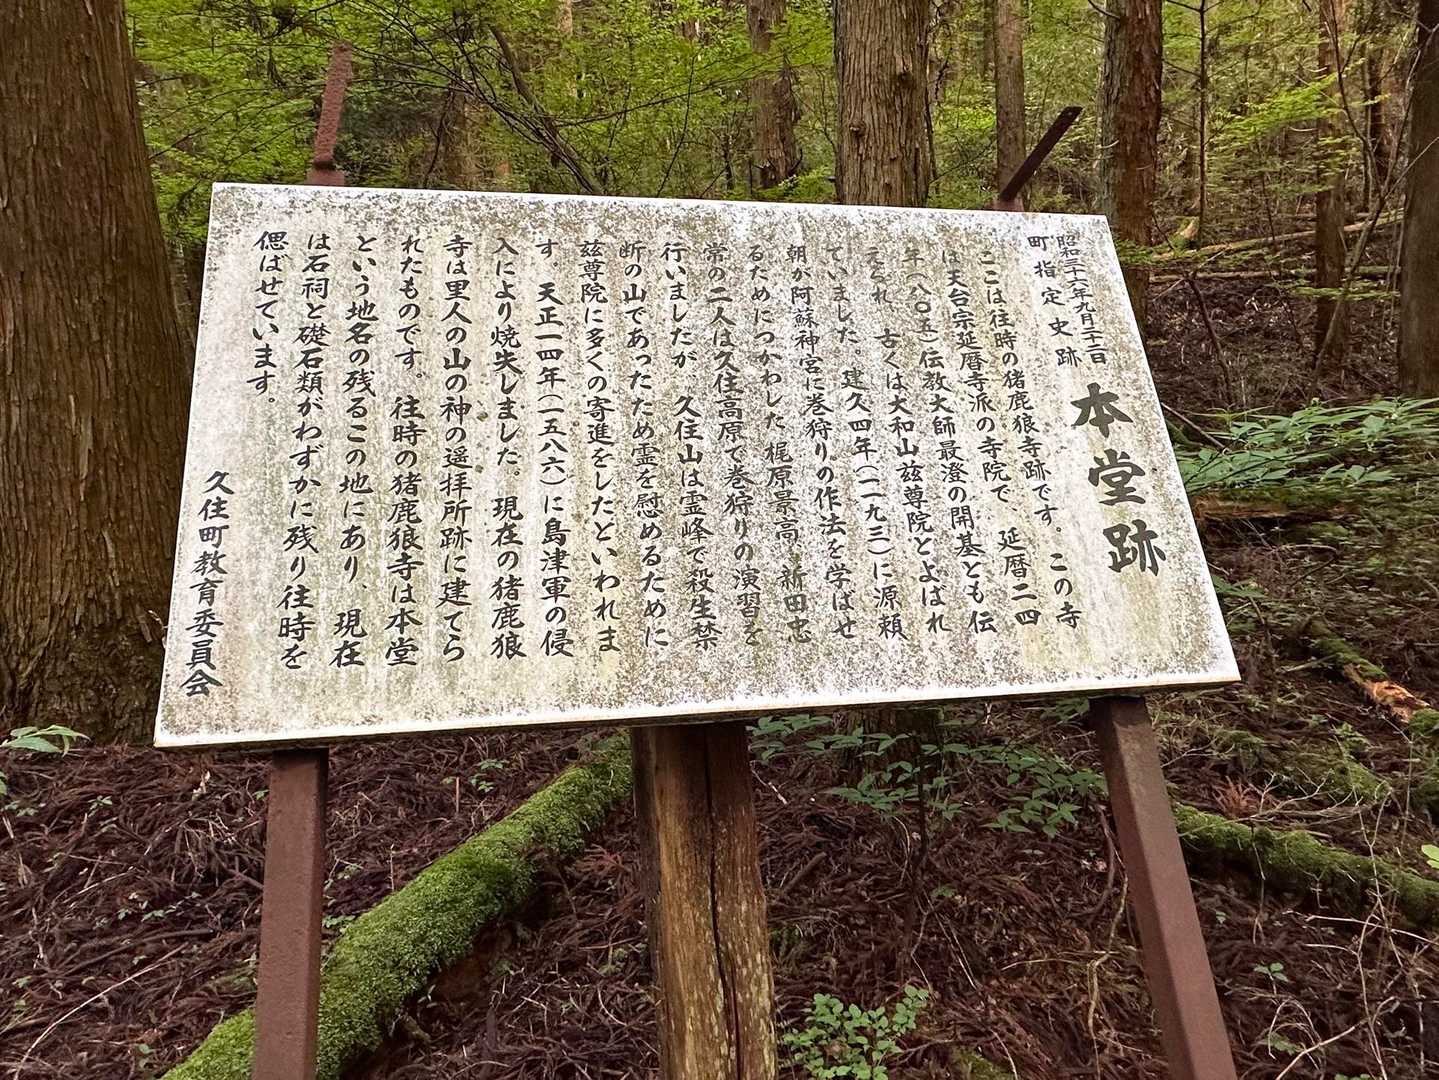 昭和三十六年九月二十二日
町指定史跡
本堂跡
ここは往時の猪鹿狼寺跡です。この寺
は天台宗延暦寺派の寺院で、延暦二四
年(八〇五)伝教大師最澄の開基とも伝
えられ、古くは大和山玆尊院とよばれ
ていました。建久四年(一一九三)に源頼
朝が阿蘇神宮に巻狩りの作法を学ばせ
るためにつかわした梶原景高、新田忠
常の二人は久住高原で巻狩りの演習を
行いましたが、久住山は霊峰で殺生禁
断の山であったため霊を慰めるために
玆尊院に多くの寄進をしたといわれま
す。天正一四年(一五八六)に島津軍の侵
入により焼失しました。現在の猪鹿狼
寺は里人の山の神の遥拝所跡に建てら
れたものです。往時の猪鹿狼寺は本堂
という地名の残るこの地にあり、現在
は石祠と礎石類がわずかに残り往時を
偲ばせています。
久住町教育委員会